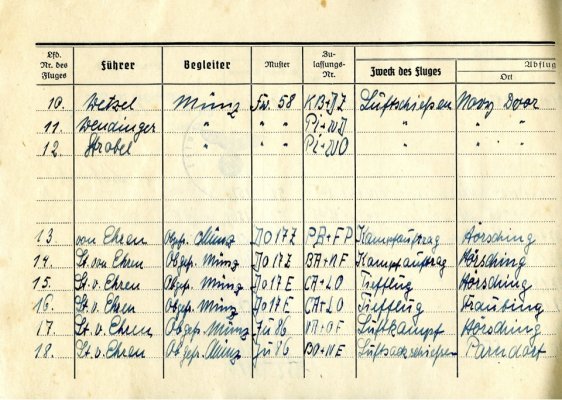 Lfd. Nr. des Fluges Führer Begleiter Muster Zulassungs-Nr. Zweck des Fluges Abflug Ort
10. Wetzel Münz Fw. 58 KB+DZ Luftschießen
11. Wendinger " " " "
12. Strobel " " " "
13 von Ehren Obgfr. Münz Do 17Z PB+FP Kampfauftrag Hörsching
14. Lt. von Ehren Obgefr. Münz Do 17Z BA+NF Kampfauftrag Hörsching
15. Lt. v. Ehren Obgefr. Münz Do 17E CA+LO Tiefflug Hörsching
16. Lt. v. Ehren Obgefr. Münz Do 17E CA+LO Tiefflug Straubing
17. Lt. v. Ehren Obgefr. Münz Ju 86 Luftkampf Hörsching
18. Lt. v. Ehren Obgefr. Münz Ju 86 BD+NE Luftsackschießen Parndorf